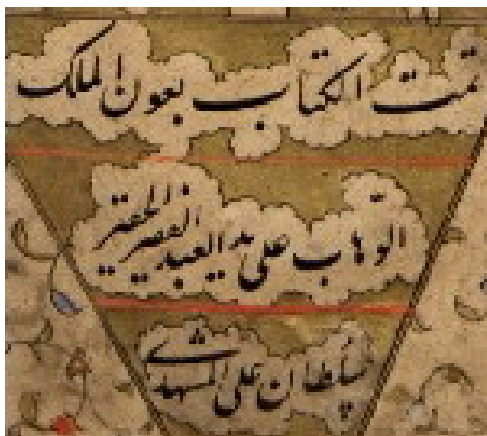 تمت الکتاب بعون الملک
الوهاب علی ید العبد الفقیر الحقیر
سلطان علی المشهدی